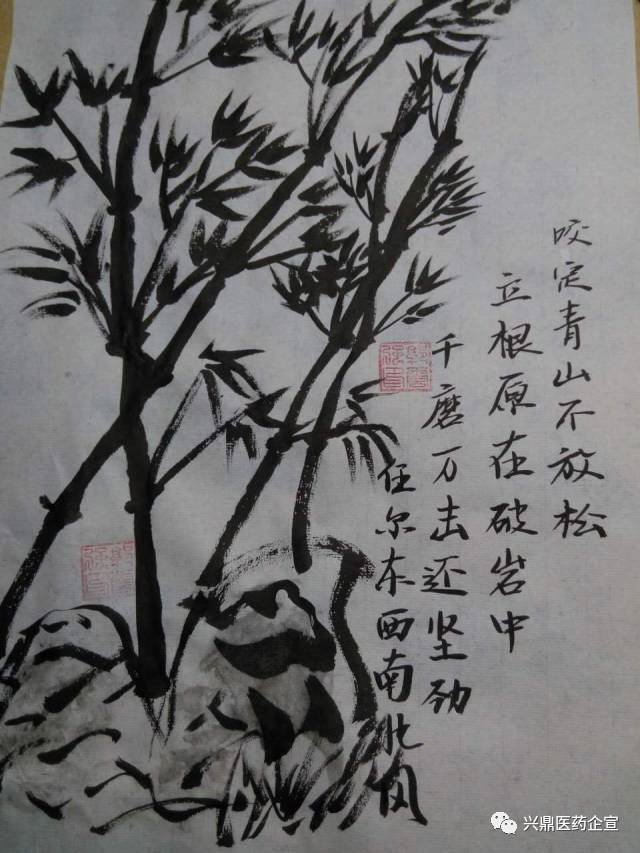 咬定青山不放松
立根原在破岩中
千磨万击还坚劲
任尔东西南北风
兴鼎医药企宣